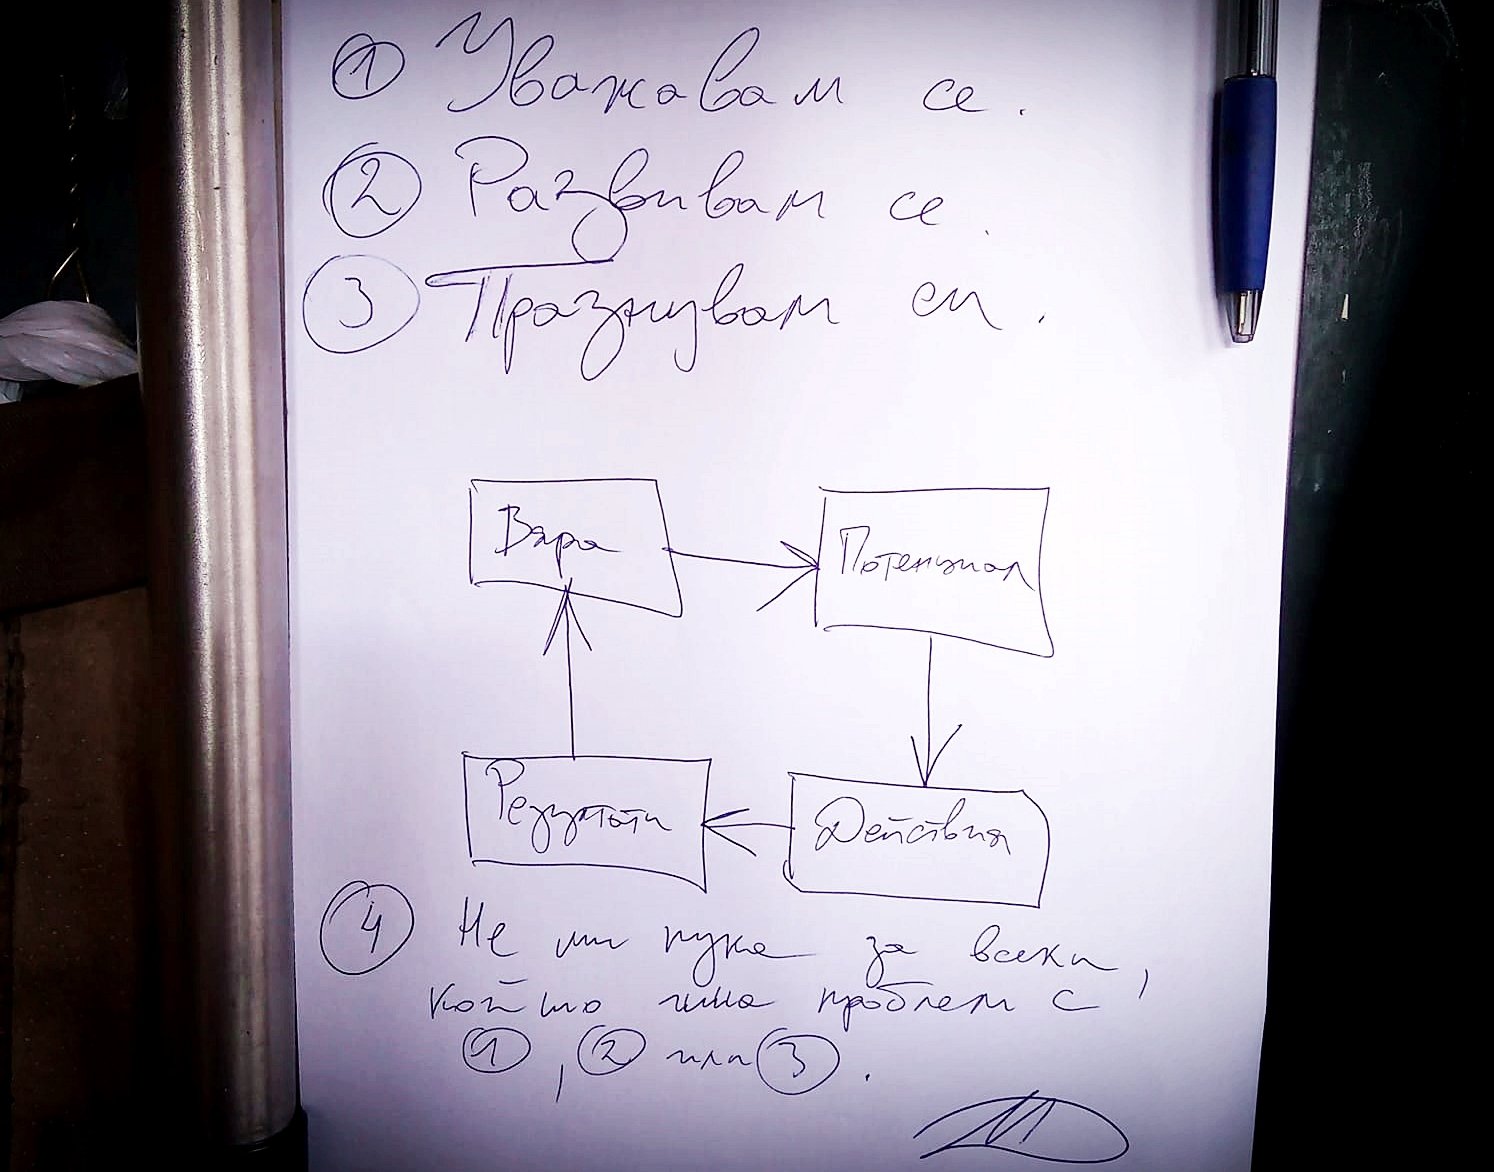 ① Уважавам се.
② Развивам се.
③ Празнувам си.
Вяра
Потенциал
Резултати
Действия
④ Не ми пука за всеки,
който има проблем с
①, ② или ③.